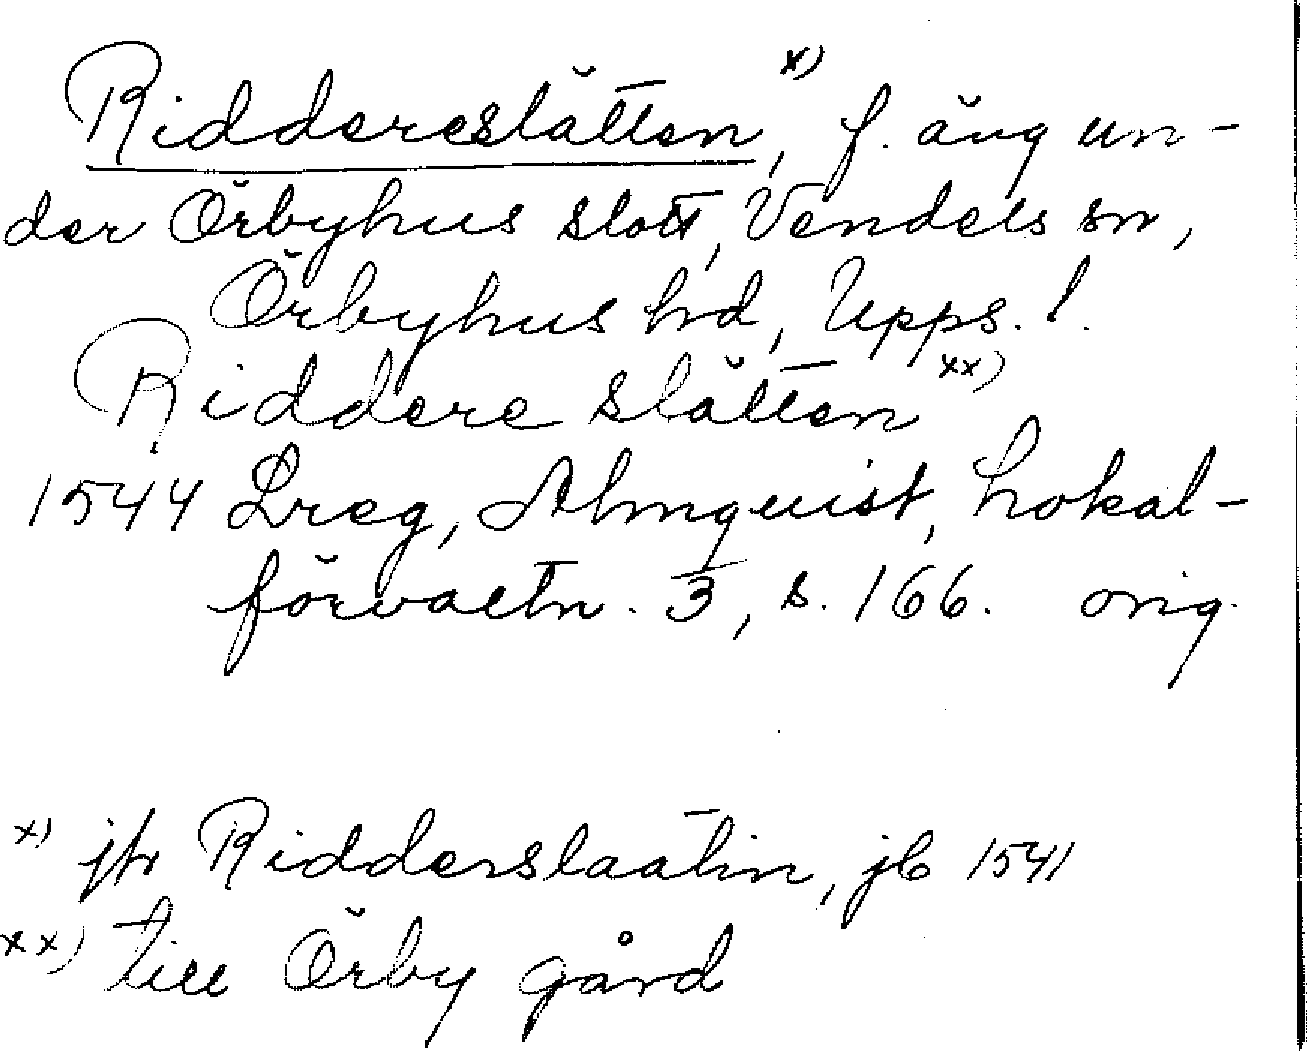 Riddereslätten, x) f. äng un-
der Örbyhus slott, Vendels sn,
Örbyhus hd, Upps. l.
Riddere slätten xx)
1544 Lreg, Almquist, Lokal-
förvaltn. 3, s. 166. orig.
x) jfr Ridderslaatin, jb 1541
xx) till Örby gård